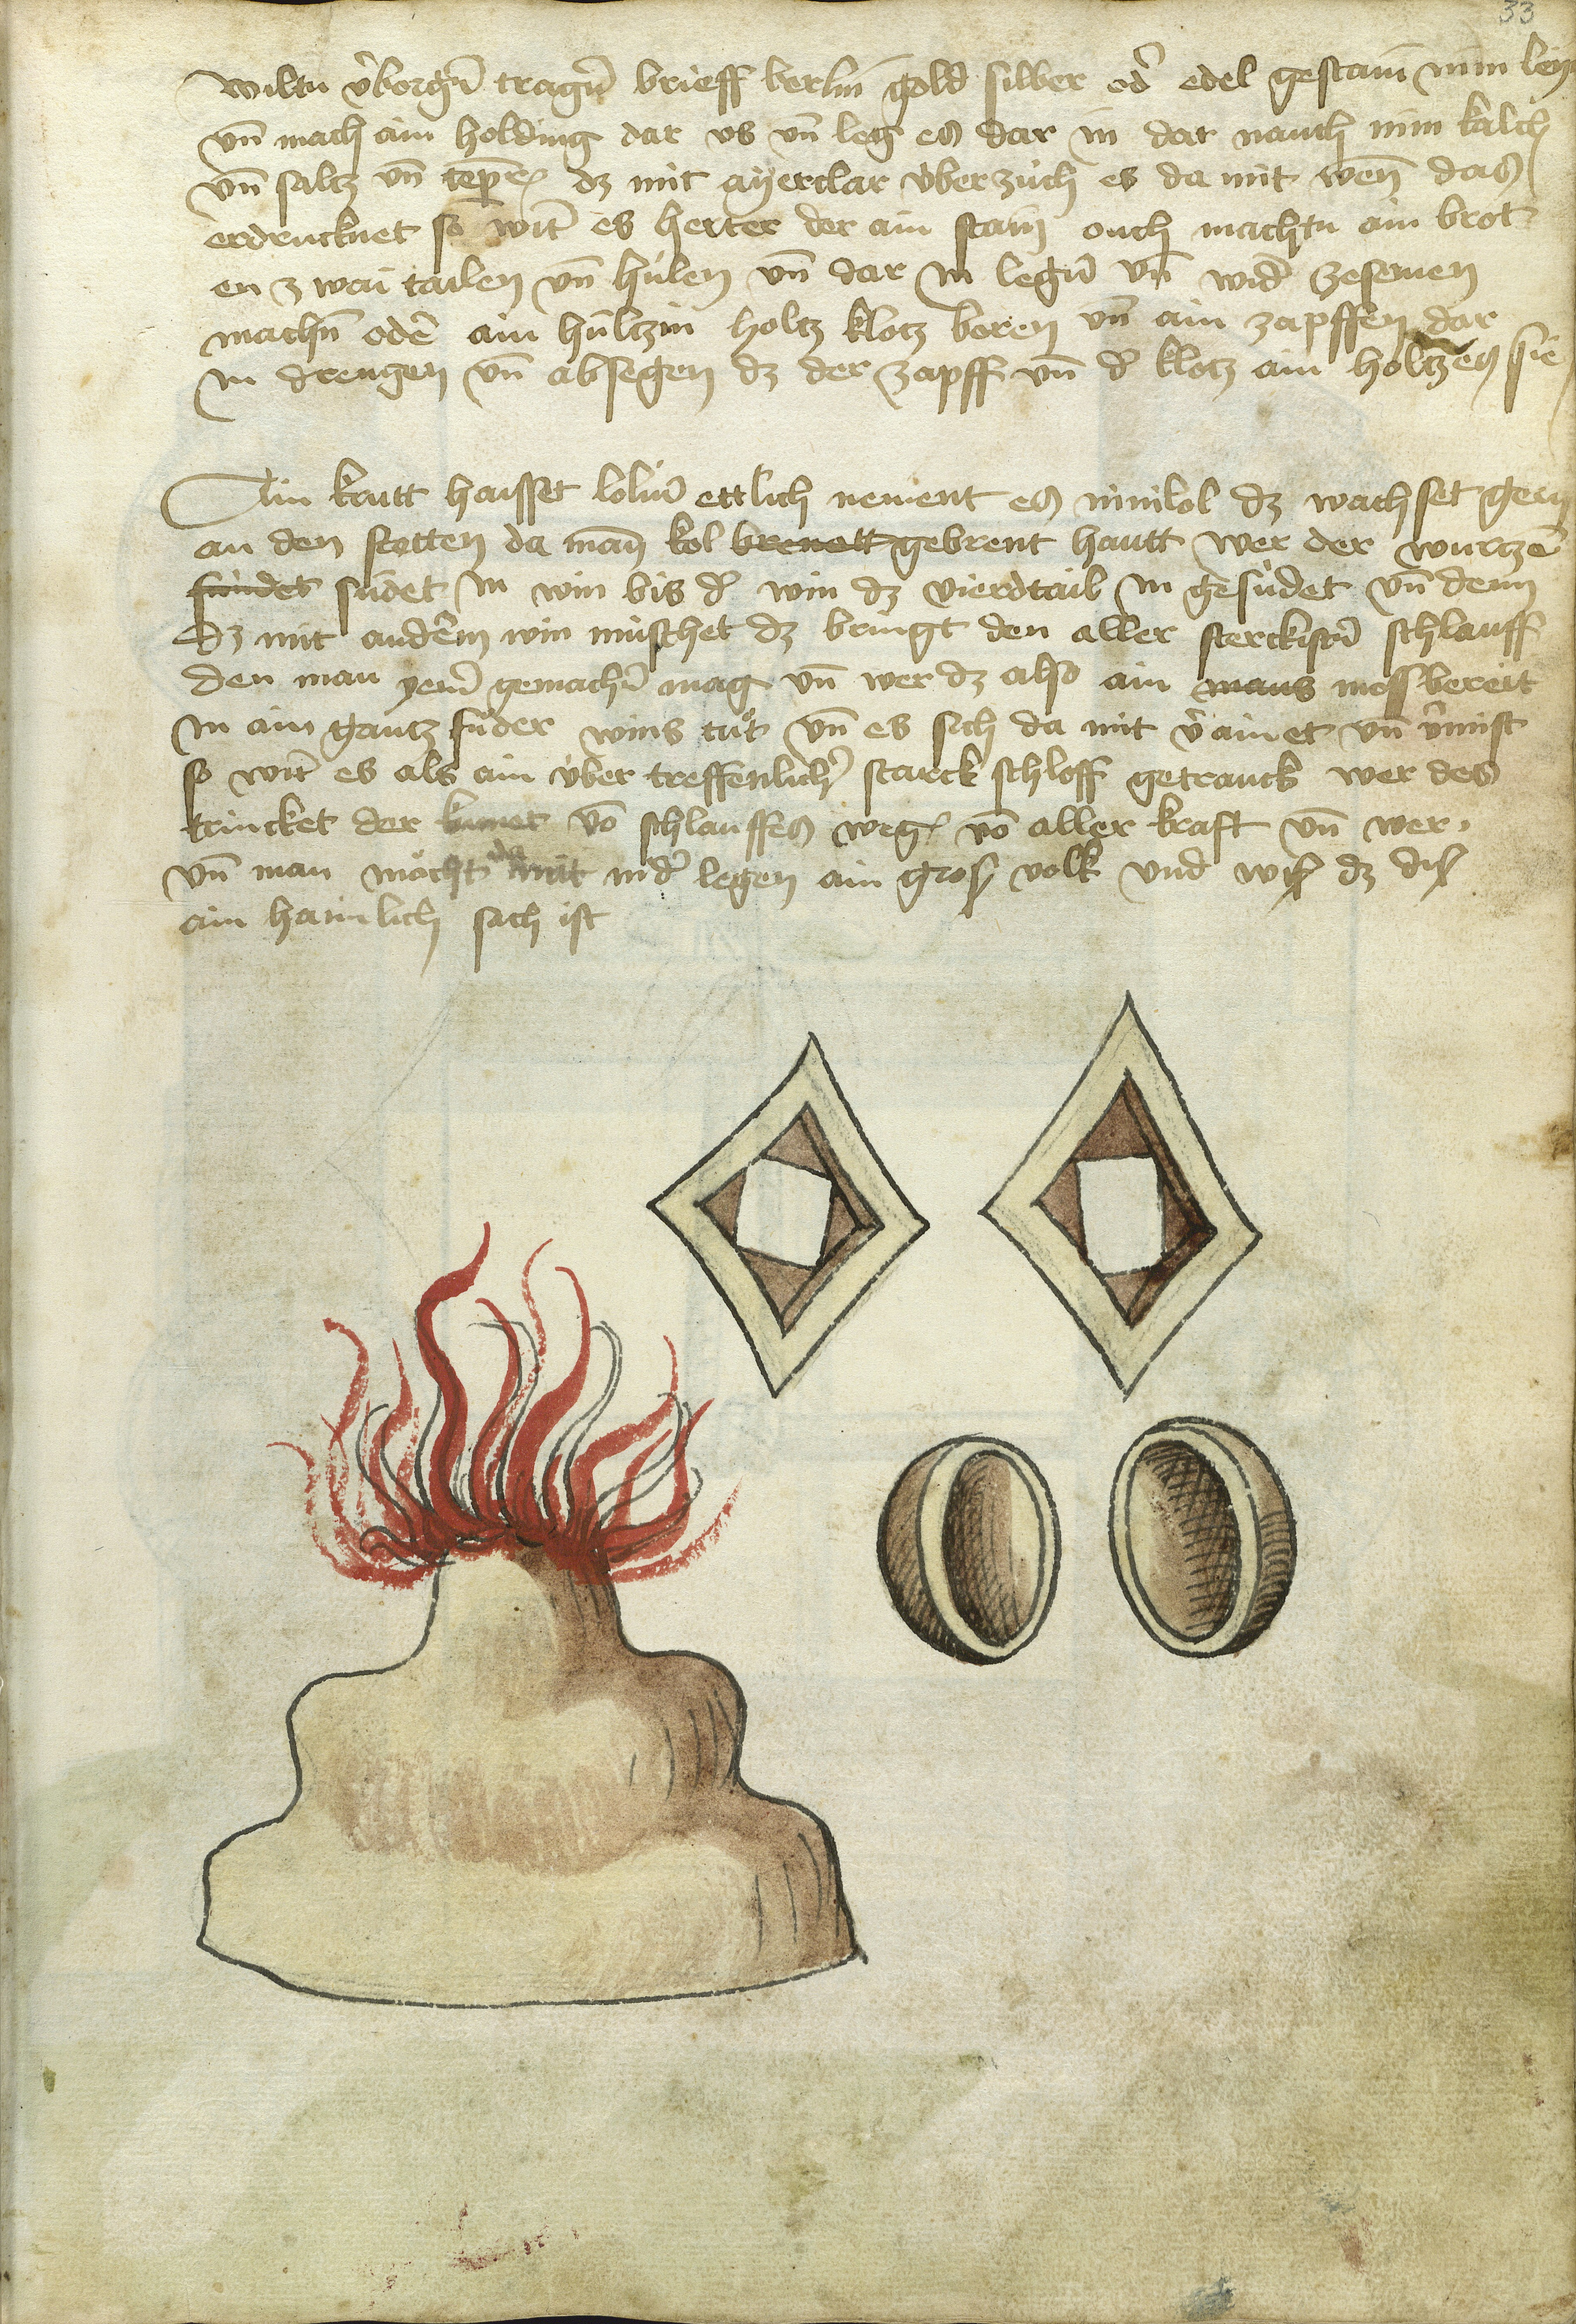 33
wiltu v̄borgn̄ tragn̄ brieff berlin gold silber od̄ edel gestain nim
vn̄ mach ain holding dar vs vn̄ leg es dar in dar nauch nim kalch
vn̄ saltz vn̄ dz mit ayerclar v̇berzüch es da mit wen̄ das
erdrucknet so wirt es herter der ain stain ouch machtu ain brot
en zwai tailen vn̄ hülen vn̄ dar in legn̄ vn̄ wid̄ zesemen
machn̄ odē ain hültzin holtz klotz boren vn̄ ain zapffen dar
in drengen vn̄ absegen dz der zapff vn̄ d̄ klotz ain holtzen sie
Ain krutt haisset loliū ettlich nement es minilol dz wachset gern
an den stetten da man kol brenett gebrent hautt wer der wurtzē
sündet südet in win bis d̄ win dz vierdtail in gesüdet vn̄ denn
dz mit anderm win müschet dz bringt den aller sterckistn̄ schlauff
den man yem̄ gemachn̄ mag vn̄ wer dz also ain maus mess bereit
in ain gantz füder wins tüt vn̄ es sich da mit v̄ainet vn̄ v̄mist
so wirt es als ain v̇ber treffenlich starck schloff getranck wer des
trincket der kumet vō schlauffes weg vō aller kraft vn̄ wer
vn̄ man möcht da mit nid̄ legen ain gros volk vnd wis dz dis
ain haimlich sach ist